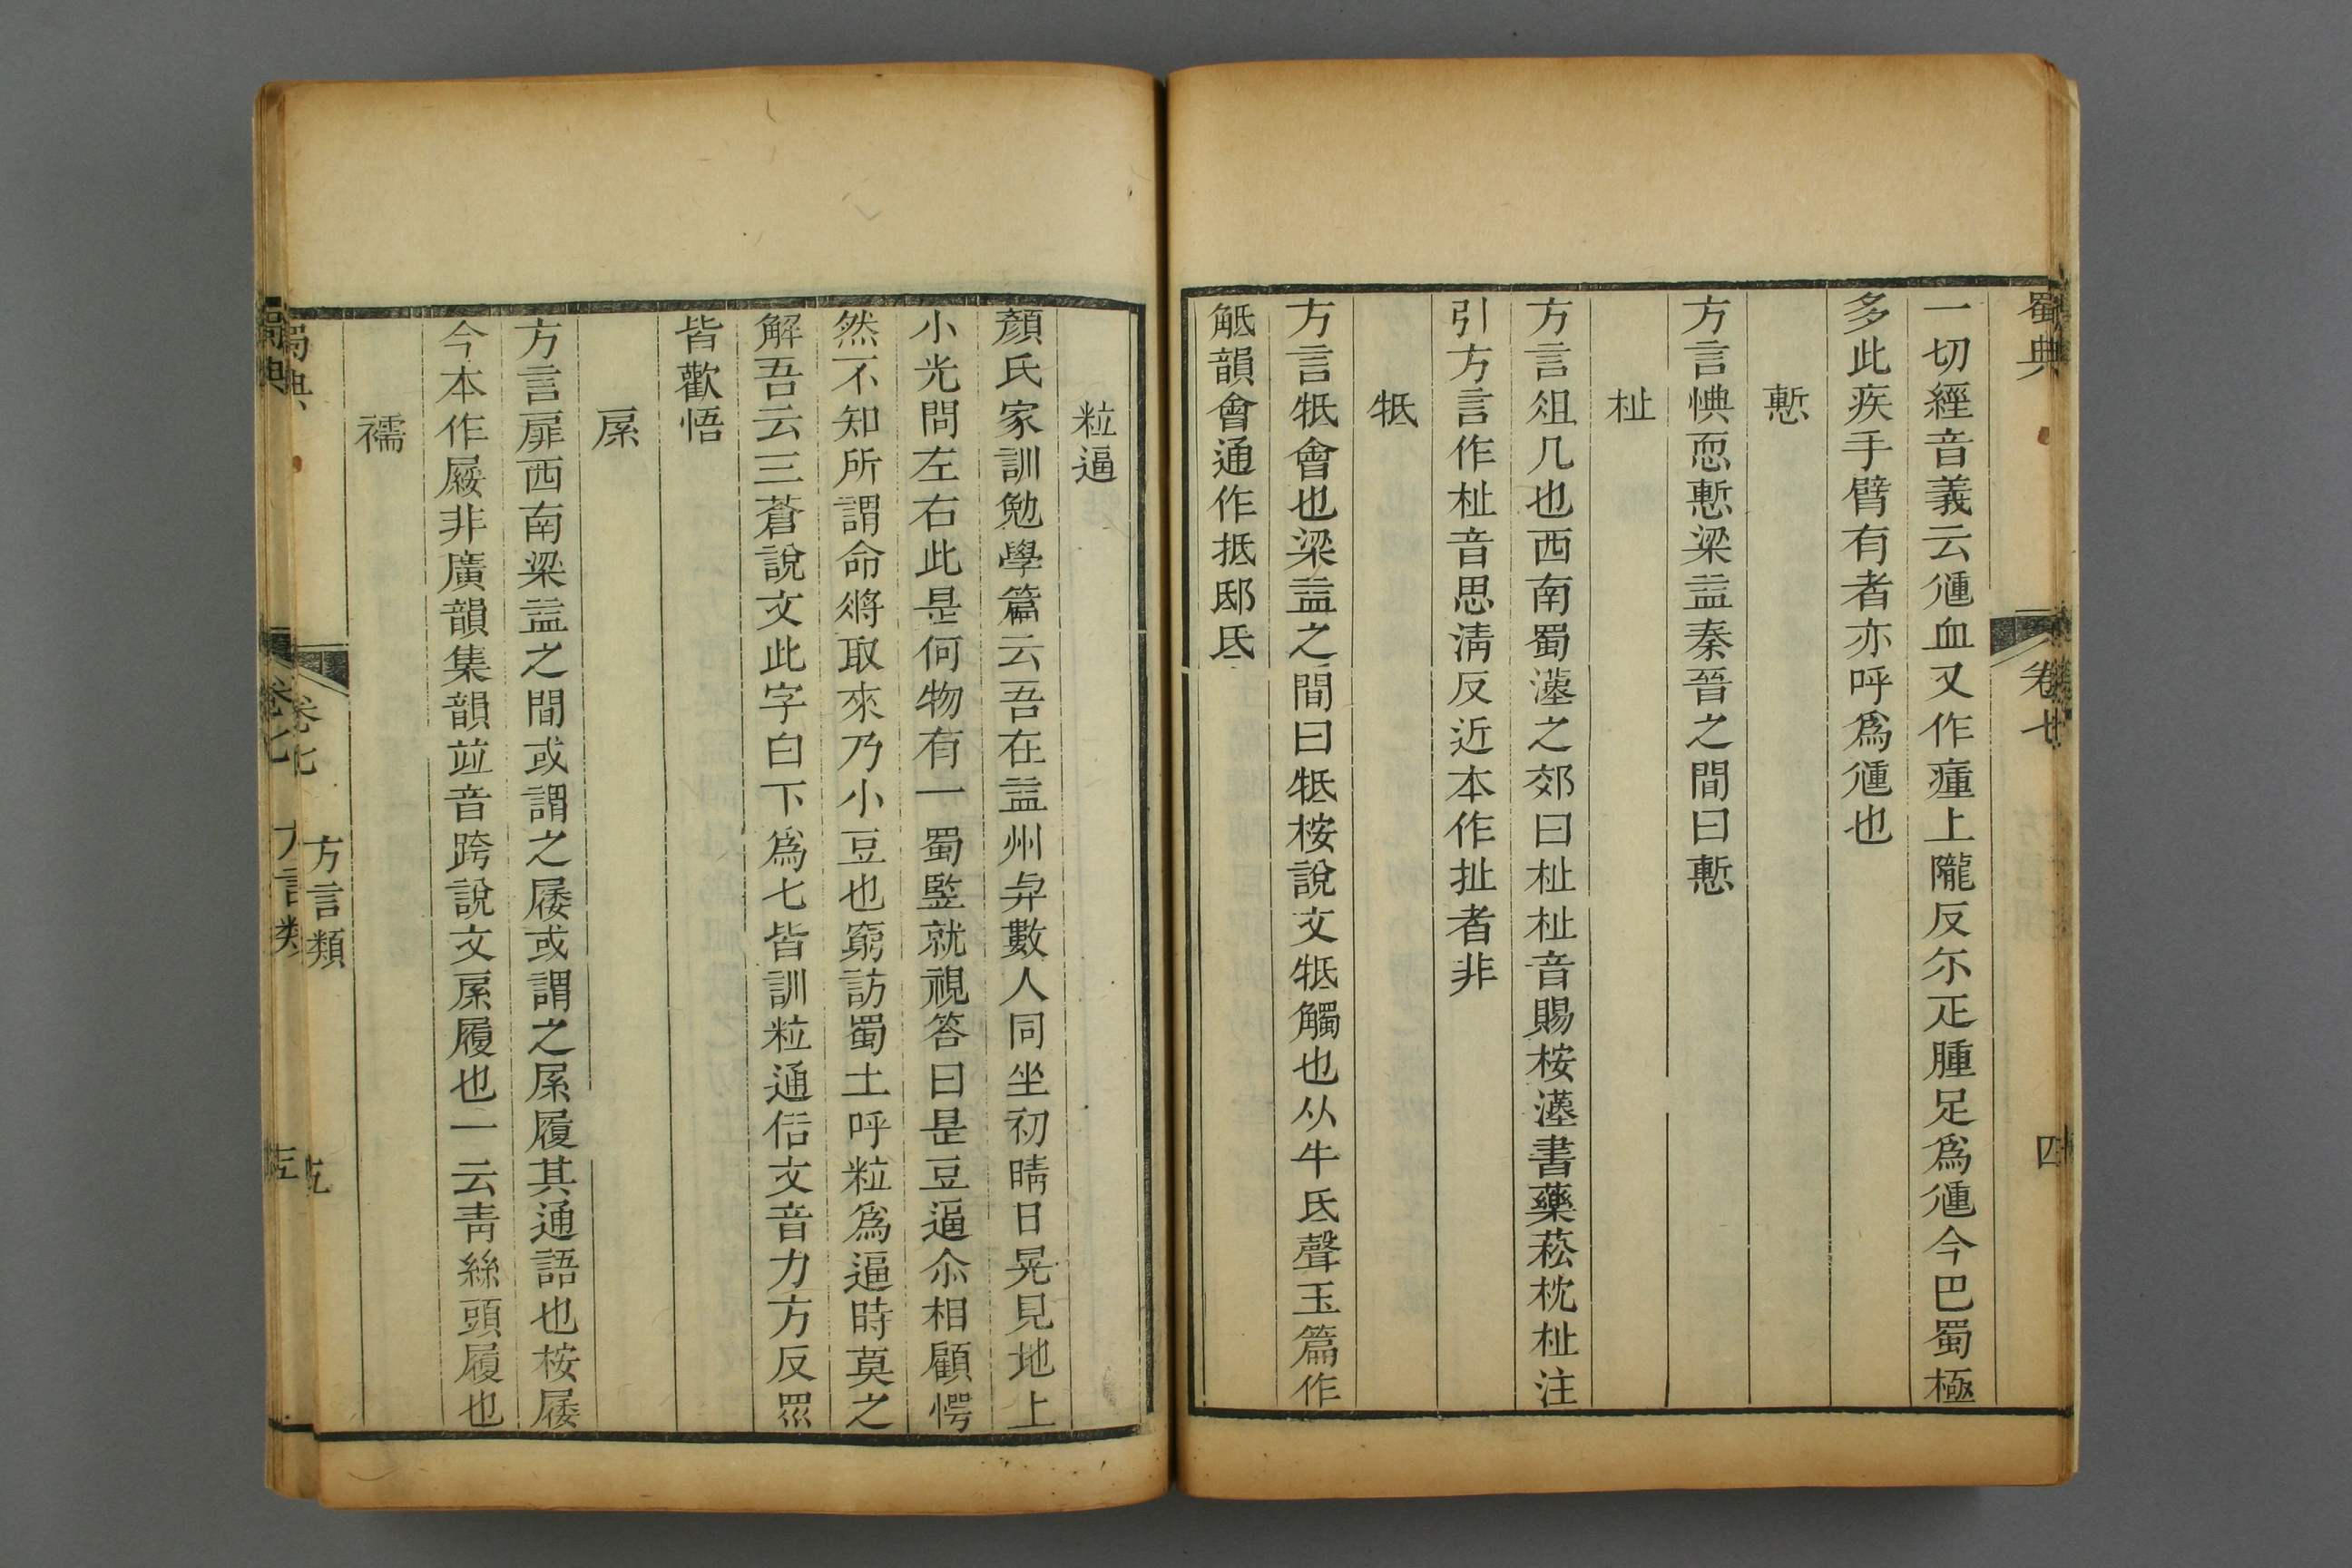 蜀典
卷七
四
一切經音義云㣫血又作瘇上隴反尒疋腫足爲㣫今巴蜀極
多此疾手臂有者亦呼爲㣫也
慙
方言㥏恧慙梁益秦晉之間曰慙
杫
方言俎几也西南蜀漢之郊曰杫杫音賜桉漢書藥崧枕杫注
引方言作杫音思漬反近本作扯者非
牴
方言牴會也梁益之間曰牴桉說文牴觸也从牛氐聲玉篇作
觝韻會通作抵邸氐
粒逼
顏氏家訓勉學篇云吾在益州與數人同坐初晴日晃見地上
小光問左右此是何物有一蜀豎就視答曰是豆逼尒相顧愕
然不知所謂命將取來乃小豆也窮訪蜀土呼粒爲逼時莫之
解吾云三蒼說文此字白下爲匕皆訓粒通俗文音力方反眾
皆歡悟
屟
方言屝西南梁益之間或謂之屦或謂之屟履其通語也桉屦
今本作屨非廣韻集韻竝音跨說文屟履也一云靑絲頭履也
襦
蜀典
卷七
方言類
五